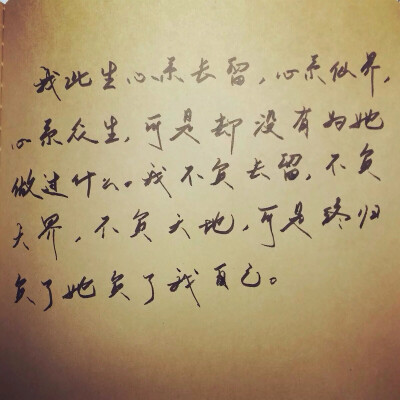 我此生心系长留，心系仙界，
心系众生，可是却没有为她
做过什么。我不负长留，不负
六界，不负天地，可是终归
负了她负了我自己。